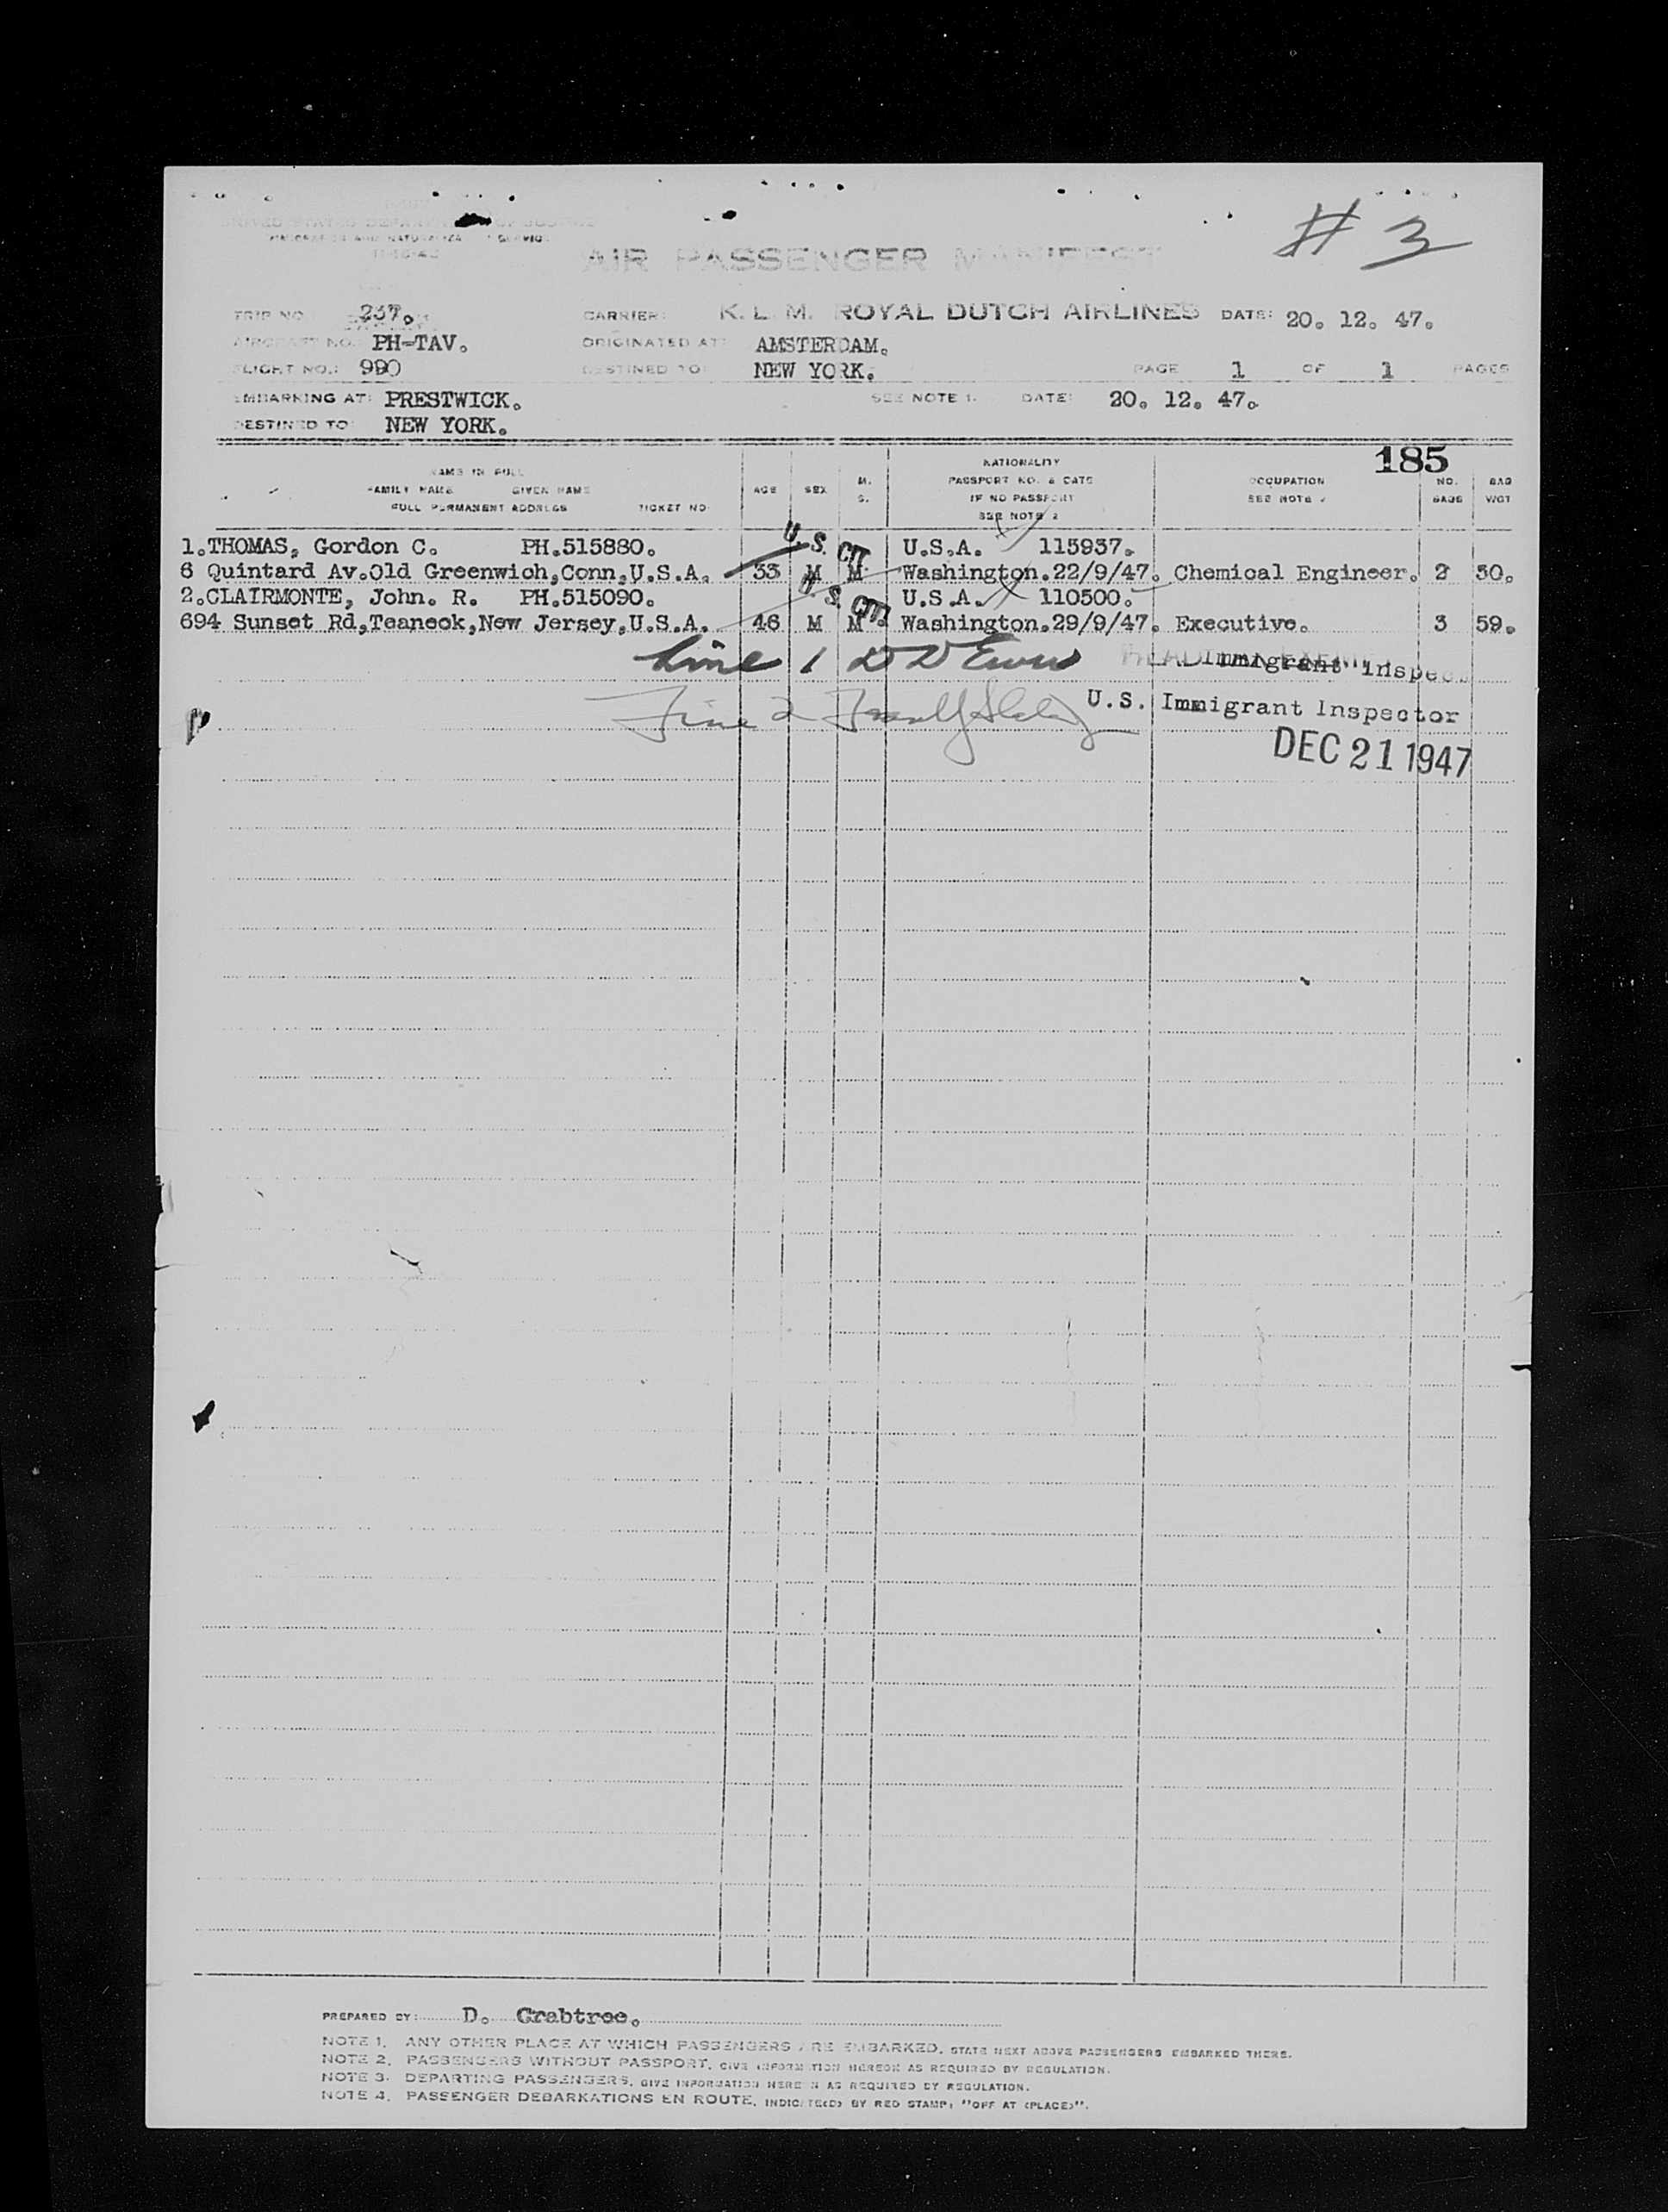 # 3
AIR PASSENGER MANIFEST
TRIP NO. 237. CARRIER: K. L. M. ROYAL DUTCH AIRLINES DATE: 20. 12. 47.
AIRCRAFT NO. PH-TAV. ORIGINATED AT: AMSTERDAM.
FLIGHT NO.: 990 DESTINED TO: NEW YORK. PAGE 1 OF 1 PAGES
EMBARKING AT: PRESTWICK. SEE NOTE 1. DATE: 20. 12. 47.
DESTINED TO NEW YORK.
185
NAME IN FULL
FAMILY NAME GIVEN NAME
FULL PERMANENT ADDRESS TICKET NO.
AGE SEX M. S.
NATIONALITY
PASSPORT NO. & DATE
IF NO PASSPORT
SEE NOTE 2
OCCUPATION
SEE NOTE
NO. BAGS
BAG WGT
1.THOMAS, Gordon C. PH.515880. U.S. CIT. U.S.A. 115937.
6 Quintard Av.Old Greenwich,Conn,U.S.A. 33 M M Washington.22/9/47. Chemical Engineer. 2 30.
2.CLAIRMONTE, John. R. PH.515090. U.S. CIT. U.S.A. 110500.
694 Sunset Rd,Teaneck,New Jersey,U.S.A. 46 M M Washington.29/9/47. Executive. 3 59.
Line 1 Immigrant Inspec
Line 2 U.S. Immigrant Inspector
DEC 21 1947
PREPARED BY: D. Crabtree.
NOTE 1. ANY OTHER PLACE AT WHICH PASSENGERS ARE EMBARKED, STATE NEXT ABOVE PASSENGERS EMBARKED THERE.
NOTE 2. PASSENGERS WITHOUT PASSPORT, GIVE INFORMATION HEREON AS REQUIRED BY REGULATION.
NOTE 3. DEPARTING PASSENGERS, GIVE INFORMATION HEREIN AS REQUIRED BY REGULATION.
NOTE 4. PASSENGER DEBARKATIONS EN ROUTE, INDICATE(D) BY RED STAMP: "OFF AT (PLACE)".